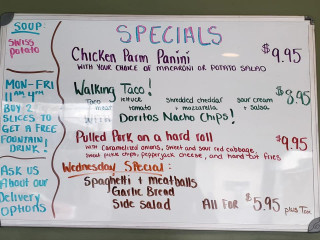 SOUP:
Swiss
potato
MON-FRI
11 AM 4PM
BUY 2
SLICES TO
GET A FREE
FOUNTAIN
DRINK!
ASK US
About our
Delivery
Options
SPECIALS
Chicken Parm Panini $9.95
WITH YOUR CHOICE OF MACARONI OR POTATO SALAD
Walking Taco! $8.95
Taco meat lettuce tomato Shredded cheddar + mozzarella sour cream + salsa
WITH Doritos Nacho Chips!
Pulled Pork on a hard roll $9.95
with Caramelized onions, sweet and sour red cabbage,
bread pickle chips, pepperjack cheese, and hand-cut fries
Wednesday Special:
Spaghetti + meatballs
Garlic Bread
Side Salad ALL FOR $5.95 plus Tax